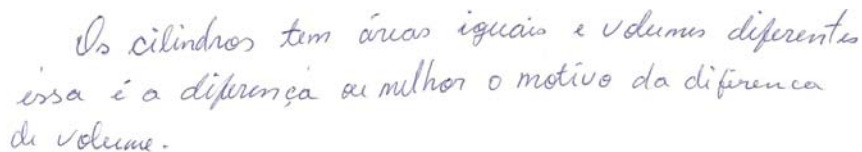 Os cilindros tem áreas iguais e volumes diferentes
essa é a diferença ou melhor o motivo da diferenca
de volume.